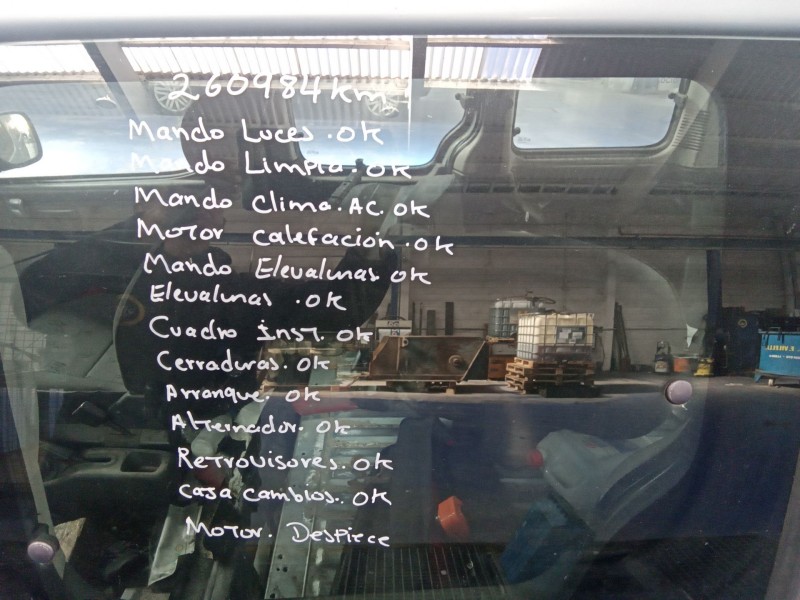 260984km
Mando Luces. OK
Mando Limpia. OK
Mando Clima. AC. OK
Motor calefacion. OK
Mando Elevalunas OK
Elevalunas . OK
Cuadro inst. OK
Cerraduras. OK
Arranque. OK
Alternador. OK
Retrovisores. OK
Caja cambios. OK
Motor. Despiece